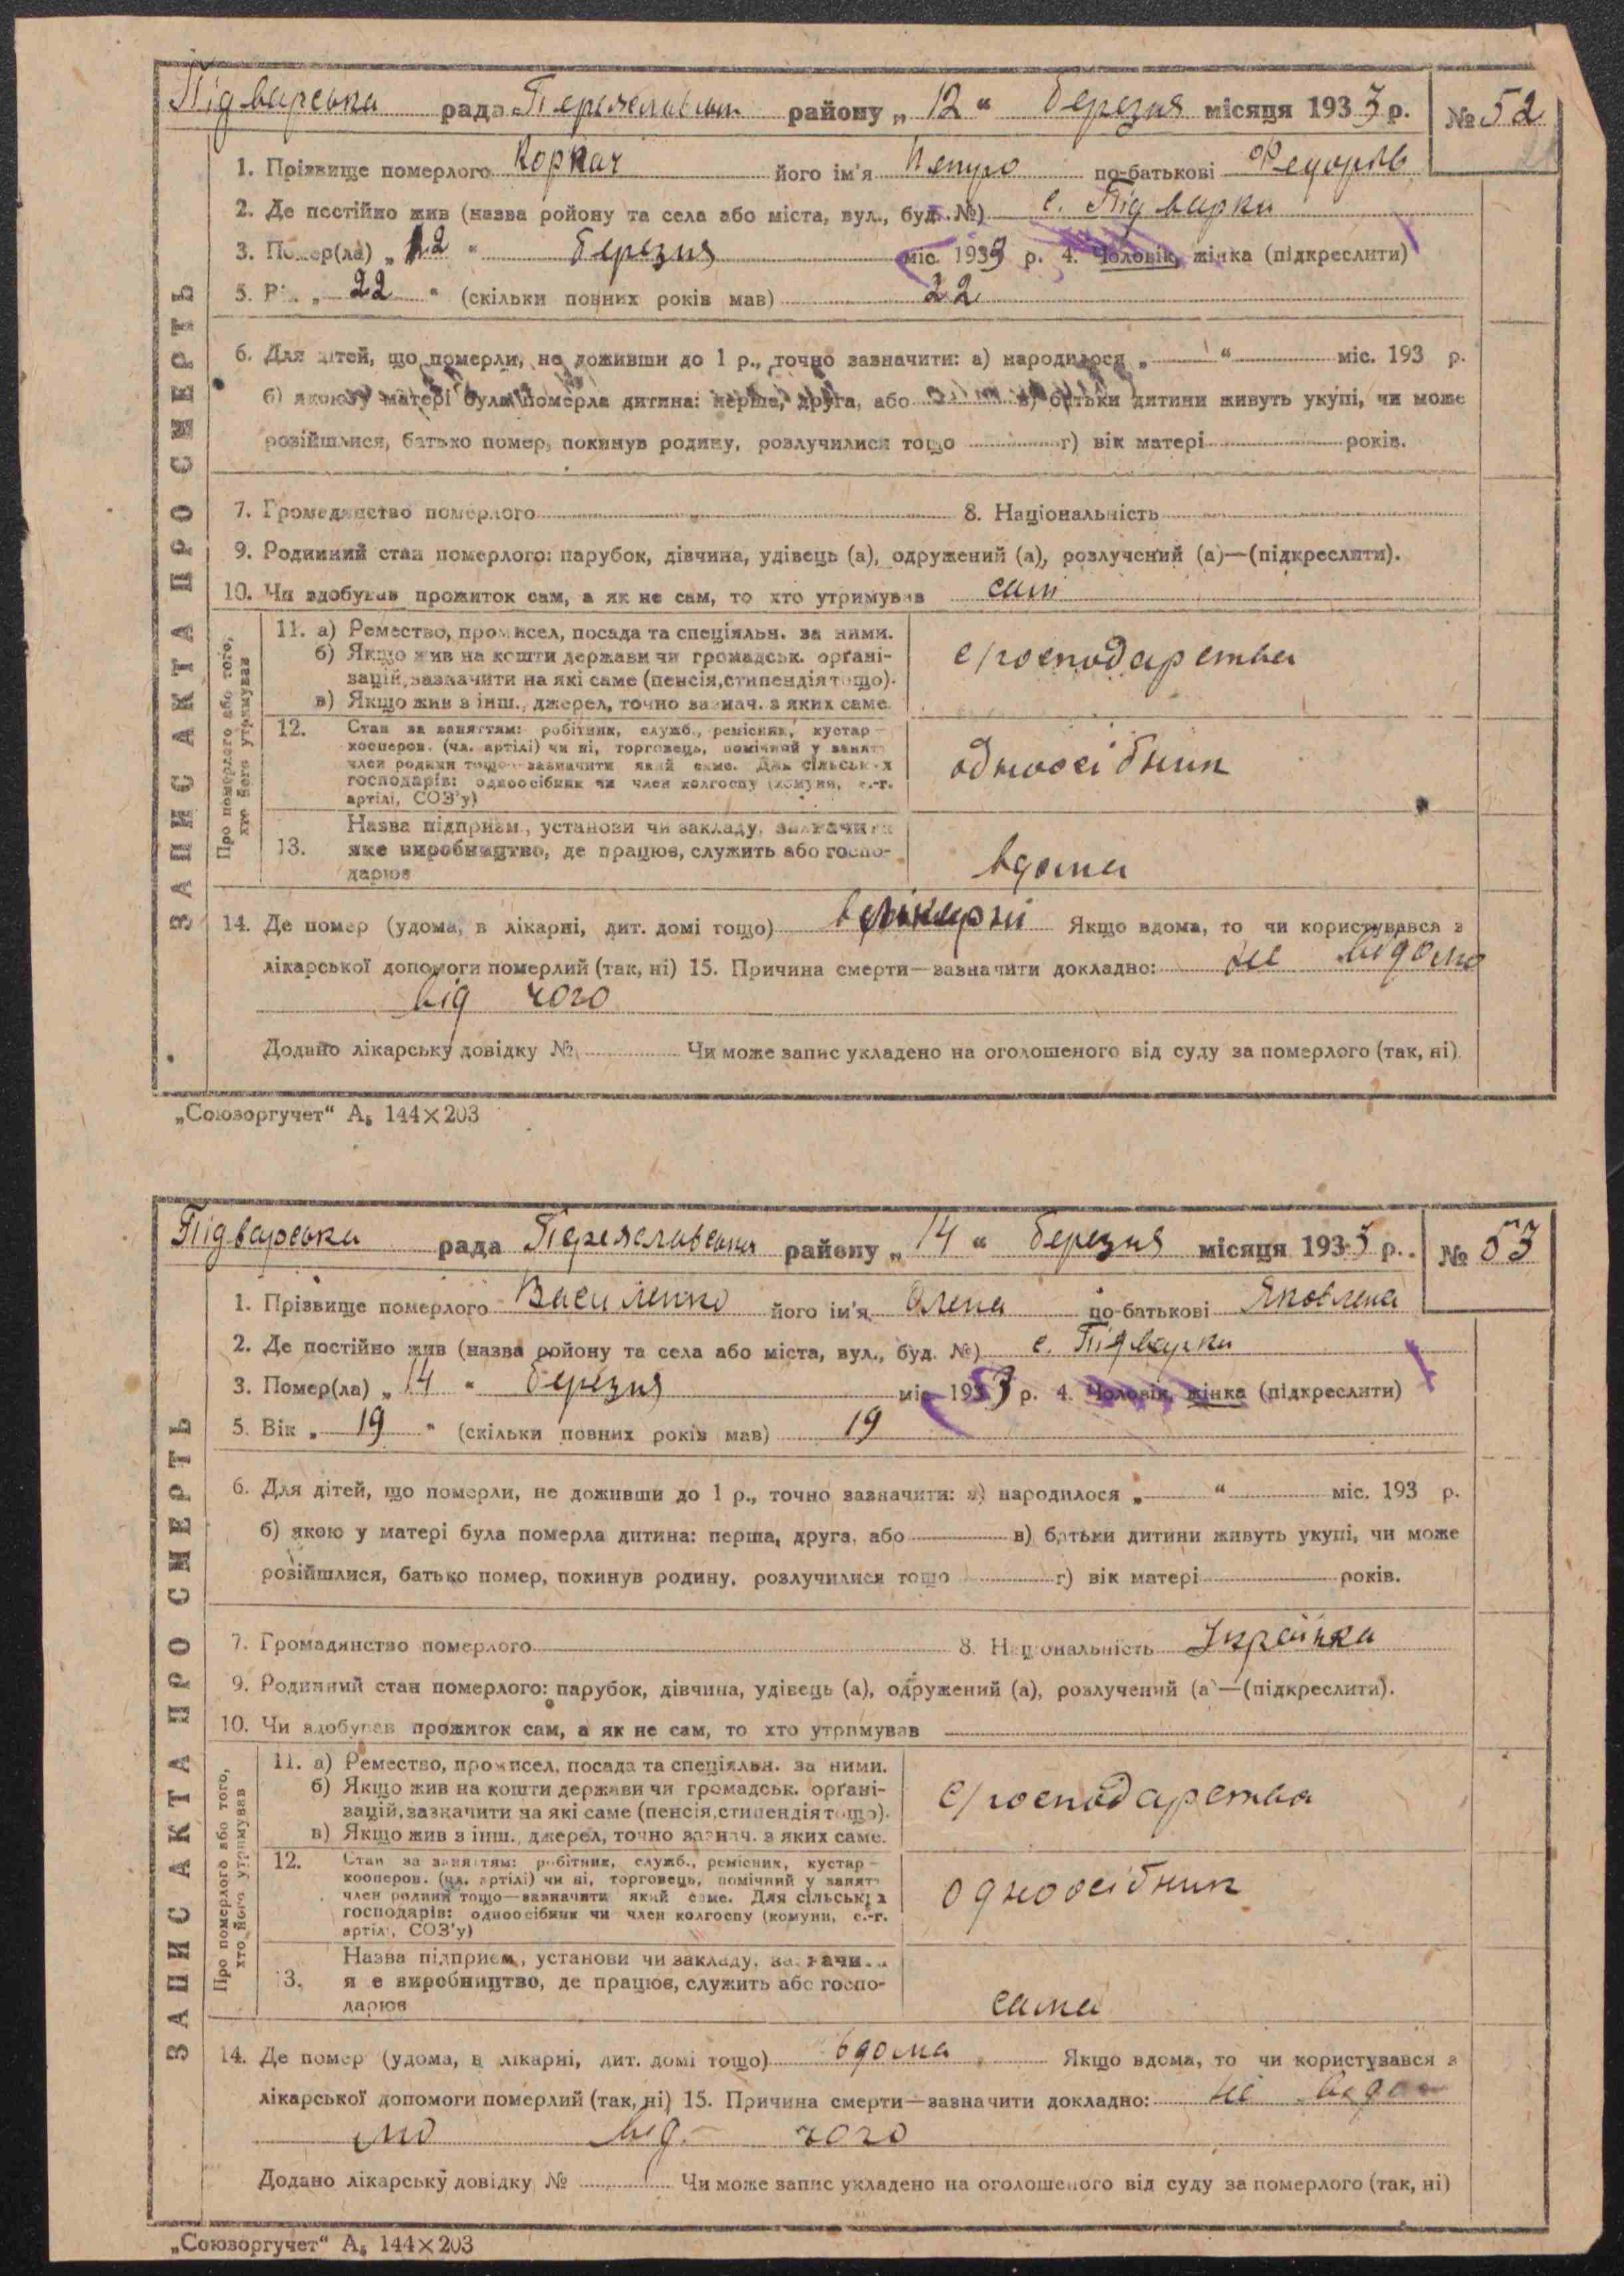 Підварська рада Переяславськ району „12“ березня місяця 1933 р. № 52
1. Прізвище померлого Коркач його ім'я Петро по-батькові Федорів
2. Де постійно жив (назва ройону та села або міста, вул., буд. №) с. Підварки
3. Помер(ла) „12“ березня міс. 1933 р. 4. Чоловік, жінка (підкреслити)
5. Вік „22“ (скільки повних років мав) 22
6. Для дітей, що померли, не доживши до 1 р., точно зазначити: а) народилося „ “ міс. 193 р.
б) якою у матері була померла дитина: перша, друга, або в) батьки дитини живуть укупі, чи може
розійшлися, батько помер, покинув родину, розлучилися тощо г) вік матері років.
7. Громадянство померлого 8. Національність
9. Родинний стан померлого: парубок, дівчина, удівець (а), одружений (а), розлучений (а)—(підкреслити).
10. Чи здобував прожиток сам, а як не сам, то хто утримував сам
ЗАПИС АКТА ПРО СМЕРТЬ
Про померлого або того,
хто його утримував
11. а) Ремество, промисел, посада та спеціяльн. за ними.
б) Якщо жив на кошти держави чи громадськ. орґані-
зацій, зазначити на які саме (пенсія, стипендія тощо).
в) Якщо жив з інш., джерел, точно зазнач. з яких саме.
с/господарства
12. Стан за заняттям: робітник, служб., ремісник, кустар—
кооперов. (чл. артілі) чи ні, торговець, помічний у занятт
член родини тощо—зазначити який саме. Для сільських
господарів: одноосібник чи член колгоспу (комуни, с.-г.
артілі, СОЗ'у)
одноосібник
Назва підприєм., установи чи закладу, зазначити
13. яке виробництво, де працює, служить або госпо-
дарює
вдома
14. Де помер (удома, в лікарні, дит. домі тощо) в лікарні Якщо вдома, то чи користувався з
лікарської допомоги померлий (так, ні) 15. Причина смерти—зазначити докладно: не відомо
від чого
Додано лікарську довідку № Чи може запис укладено на оголошеного від суду за померлого (так, ні)
„Союзоргучет“ А₅ 144×203
Підварська рада Переяславська району „14“ березня місяця 1933 р. № 53
1. Прізвище померлого Василенко його ім'я Олена по-батькові Яковлена
2. Де постійно жив (назва ройону та села або міста, вул., буд. №) с. Підварки
3. Помер(ла) „14“ березня міс. 1933 р. 4. Чоловік, жінка (підкреслити)
5. Вік „19“ (скільки повних років мав) 19
6. Для дітей, що померли, не доживши до 1 р., точно зазначити: а) народилося „ “ міс. 193 р.
б) якою у матері була померла дитина: перша, друга, або в) батьки дитини живуть укупі, чи може
розійшлися, батько помер, покинув родину, розлучилися тощо г) вік матері років.
7. Громадянство померлого 8. Національність Українка
9. Родинний стан померлого: парубок, дівчина, удівець (а), одружений (а), розлучений (а)—(підкреслити).
10. Чи здобував прожиток сам, а як не сам, то хто утримував
ЗАПИС АКТА ПРО СМЕРТЬ
Про померлого або того,
хто його утримував
11. а) Ремество, промисел, посада та спеціяльн. за ними.
б) Якщо жив на кошти держави чи громадськ. орґані-
зацій, зазначити на які саме (пенсія, стипендія тощо).
в) Якщо жив з інш., джерел, точно зазнач. з яких саме.
с/господарства
12. Стан за заняттям: робітник, служб., ремісник, кустар—
кооперов. (чл. артілі) чи ні, торговець, помічний у занятт
член родини тощо—зазначити який саме. Для сільських
господарів: одноосібник чи член колгоспу (комуни, с.-г.
артілі, СОЗ'у)
одноосібник
Назва підприєм., установи чи закладу, зазначити
13. яке виробництво, де працює, служить або госпо-
дарює
сама
14. Де помер (удома, в лікарні, дит. домі тощо) вдома Якщо вдома, то чи користувався з
лікарської допомоги померлий (так, ні) 15. Причина смерти—зазначити докладно: не ведо
мо від чого
Додано лікарську довідку № Чи може запис укладено на оголошеного від суду за померлого (так, ні)
„Союзоргучет“ А₅ 144×203